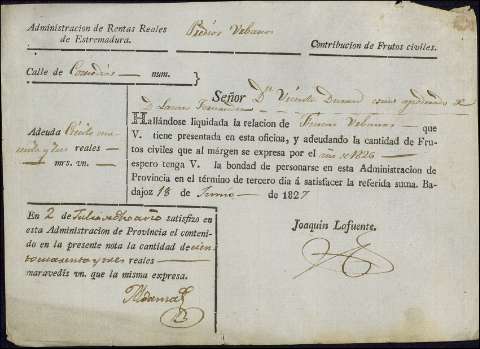 Administracion de Rentas Reales
de Estremadura.
Predios Urbanos
Contribucion de Frutos civiles.
Calle de Comedias num.
Señor Dn. Vicente Durand como apoderado de
D. Lucas Fernandez
Hallándose liquidada la relacion de Fincas Urbanas que
V. tiene presentada en esta oficina, y adeudando la cantidad de Fru-
tos civiles que al márgen se expresa por el año de 1826
espero tenga V. la bondad de personarse en esta Administracion de
Provincia en el término de tercero dia á satisfacer la referida suma. Ba-
dajoz 18 de Junio de 1827
Adeuda Ciento cua
renta y tres reales
mrs. vn.
Joaquin Lafuente.
En 2 de Julio de dho año satisfizo en
esta Administracion de Provincia el contenido
en la presente nota la cantidad de cien
to cuarenta y tres reales
maravedís vn. que la misma expresa.